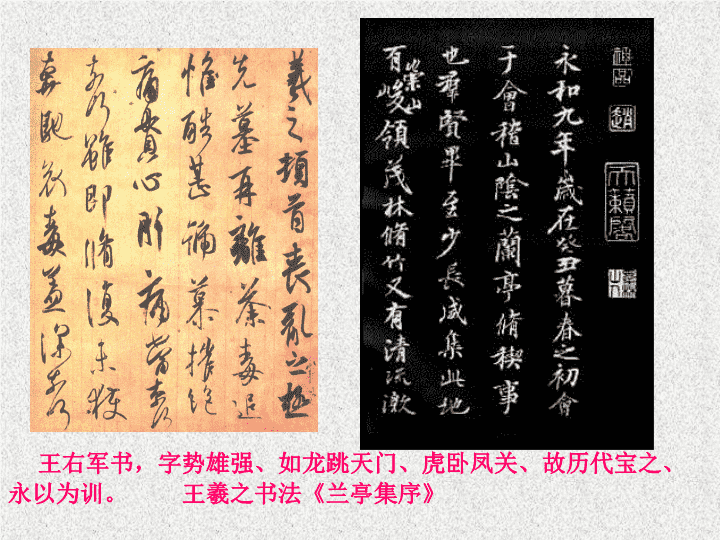 羲之頓首喪亂之極
先墓再離荼毒追
惟酷甚號慕摧絕
痛貫心肝痛當柰何
柰何雖即脩復未獲
奔馳哀毒益深柰何
天籟閣
永和九年歲在癸丑暮春之初會
于會稽山陰之蘭亭脩稧事
也羣賢畢至少長咸集此地
有崇山峻領茂林脩竹又有清流激
王右军书，字势雄强、如龙跳天门、虎卧凤关、故历代宝之、
永以为训。 王羲之书法《兰亭集序》